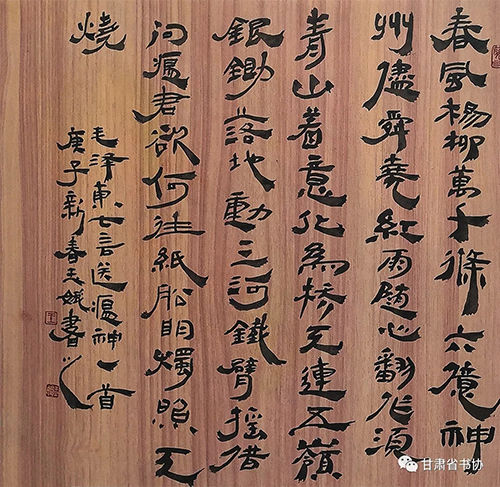 春風楊柳萬千條六億神
州儘舜堯紅雨随心翻作浪
青山着意化為桥天連五嶺
銀鋤落地動三河鐵臂搖借
问瘟君欲何往紙船明燭照天
燒
毛澤東七言送瘟神一首
庚子新春王娥書
甘肃省书协